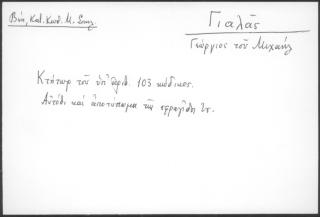 Βέη, Κατ. Κωδ. Μ. Σπηλ.
Γιαλᾶς
Γεώργιος τοῦ Μιχαήλ
Κτήτωρ τοῦ ὑπ' ἀριθ. 103 κώδικος.
Αὐτόθι καὶ ἀποτύπωμα τῆς σφραγῖδος